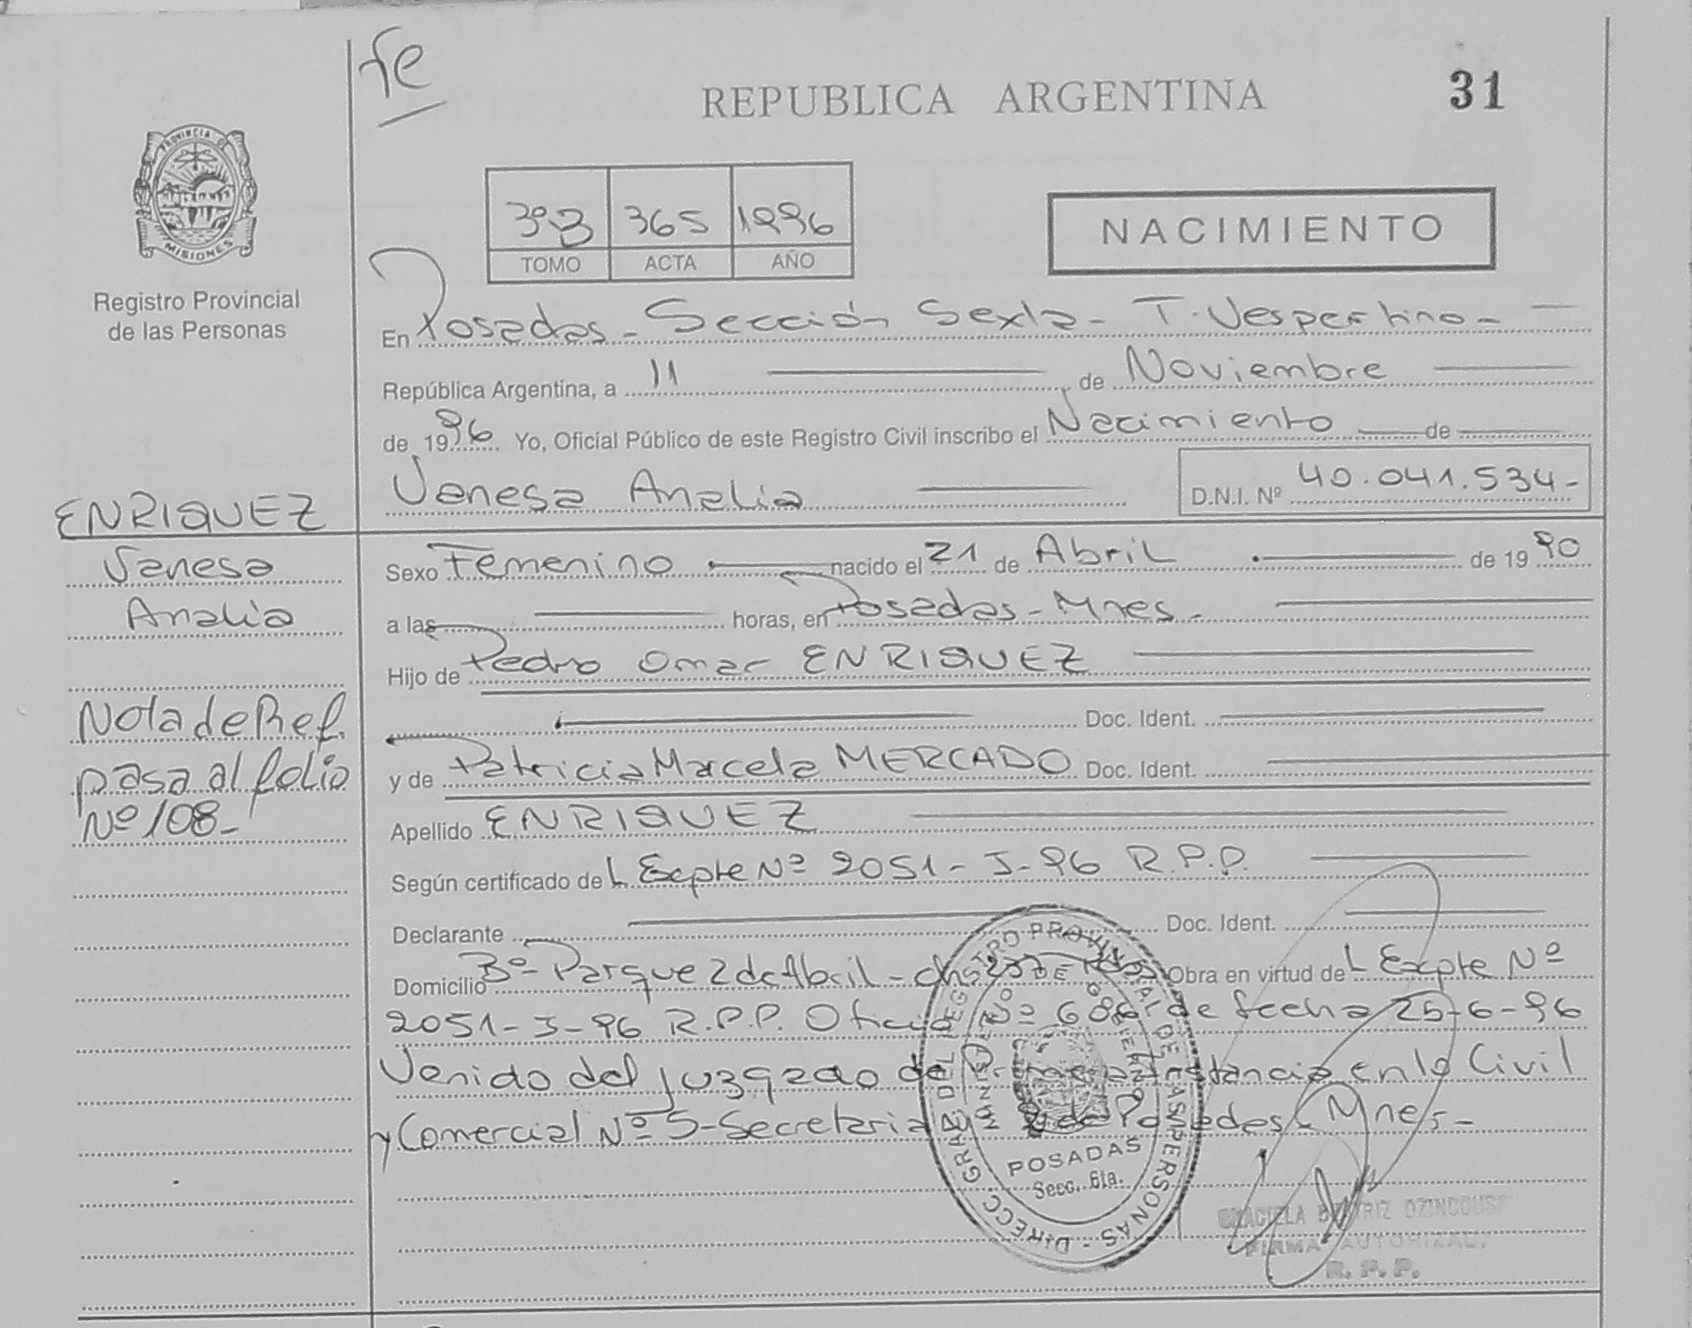 fe
REPUBLICA ARGENTINA 31
PROVINCIA DE MISIONES
Registro Provincial
de las Personas
3º B 365 1996
TOMO ACTA AÑO
NACIMIENTO
En Posadas - Sección Sexta - T. Vespertino -
República Argentina, a 11 de Noviembre
de 1996 Yo, Oficial Público de este Registro Civil inscribo el Nacimiento de
Vanesa Analia D.N.I. Nº 40.041.534-
ENRIQUEZ
Vanesa
Analia
Nota de Ref.
pasa al folio
Nº 108-
Sexo Femenino nacido el 21 de Abril de 1990
a las horas, en Posadas - Mnes.
Hijo de Pedro Omar ENRIQUEZ
Doc. Ident.
y de Patricia Marcela MERCADO Doc. Ident.
Apellido ENRIQUEZ
Según certificado de L Expte Nº 2051 - J - 96 R.P.P.
Declarante Doc. Ident.
Domicilio Bº - Parque 2 de Abril - Obra en virtud de L Expte Nº
2051 - J - 96 R.P.P. Oficio Nº 606 de fecha 25-6-96
Venido del juzgado de Primera Instancia en lo Civil
y Comercial Nº 5 - Secretaria de Posadas - Mnes -
DIRECC GRAL DEL REGISTRO PROVINCIAL DE LAS PERSONAS -
MINISTERIO DE GOBIERNO
POSADAS
Secc. 6ta.
GRACIELA BEATRIZ
FIRMA AUTORIZADA
R. P. P.